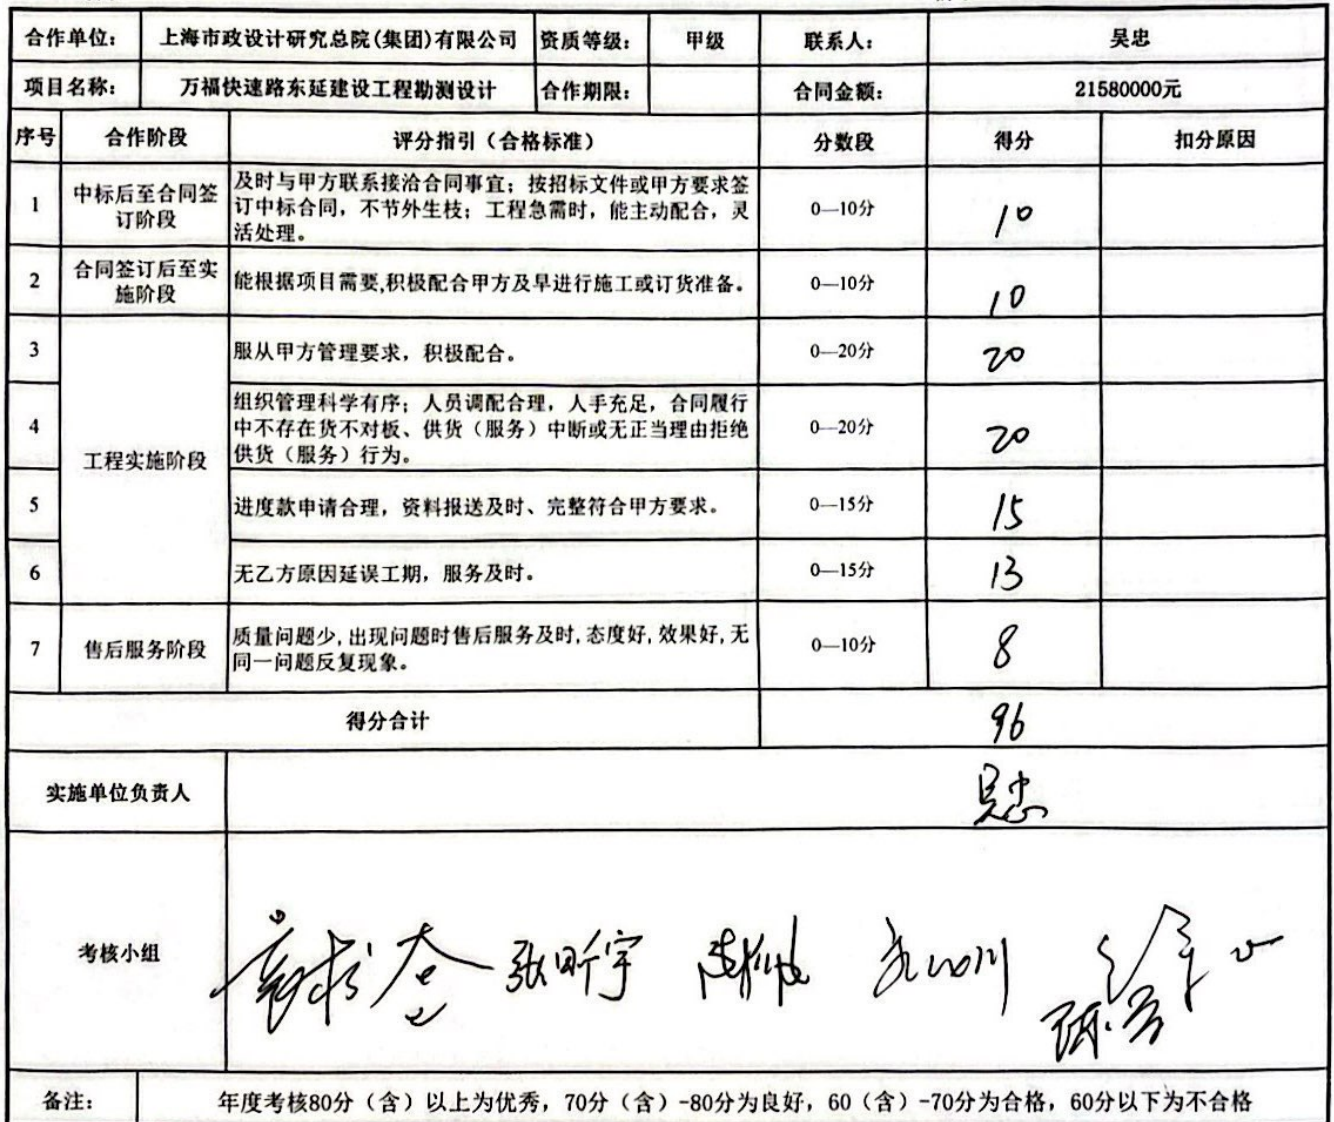 合作单位： 上海市政设计研究总院(集团)有限公司 资质等级： 甲级 联系人： 吴忠
项目名称： 万福快速路东延建设工程勘测设计 合作期限： 合同金额： 21580000元
序号 合作阶段 评分指引（合格标准） 分数段 得分 扣分原因
1 中标后至合同签订阶段 及时与甲方联系接洽合同事宜；按招标文件或甲方要求签
订中标合同，不节外生枝；工程急需时，能主动配合，灵
活处理。 0—10分 10
2 合同签订后至实施阶段 能根据项目需要,积极配合甲方及早进行施工或订货准备。 0—10分 10
3 服从甲方管理要求，积极配合。 0—20分 20
4 组织管理科学有序；人员调配合理，人手充足，合同履行
中不存在货不对板、供货（服务）中断或无正当理由拒绝
供货（服务）行为。 0—20分 20
工程实施阶段
5 进度款申请合理，资料报送及时、完整符合甲方要求。 0—15分 15
6 无乙方原因延误工期，服务及时。 0—15分 13
7 售后服务阶段 质量问题少,出现问题时售后服务及时,态度好,效果好,无
同一问题反复现象。 0—10分 8
得分合计 96
实施单位负责人 吴忠
考核小组
备注： 年度考核80分（含）以上为优秀，70分（含）-80分为良好，60（含）-70分为合格，60分以下为不合格